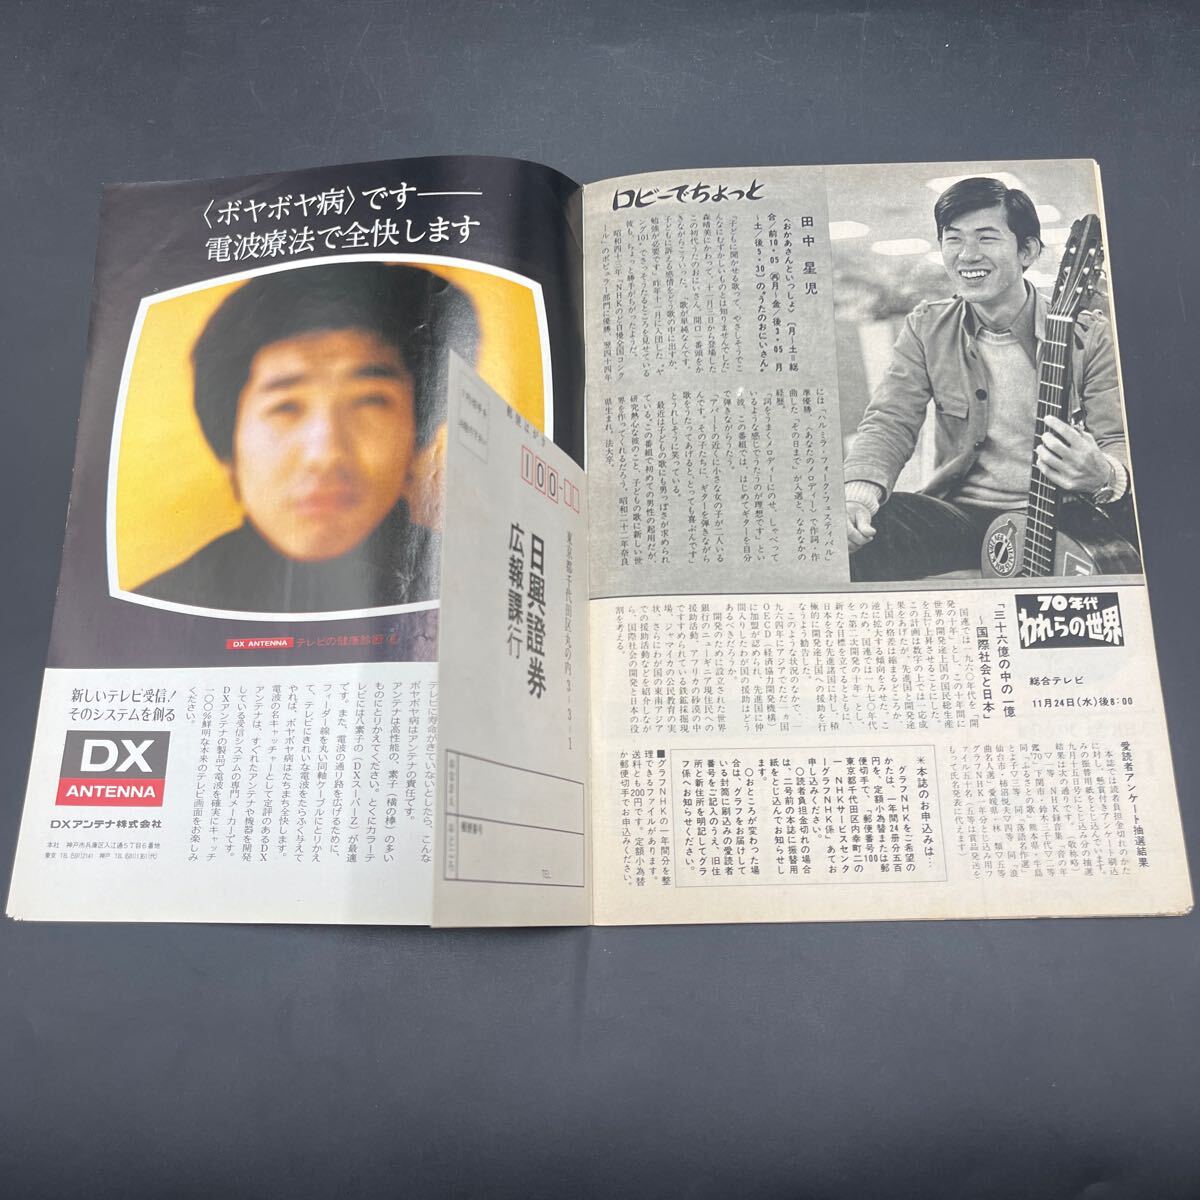 〈ボヤボヤ病〉です——
電波療法で全快します
DX ANTENNA テレビの健康診断
新しいテレビ受信!
そのシステムを創る
DX
ANTENNA
DXアンテナ株式会社
本社 神戸市兵庫区入江通5丁目6番地
テレビに寿命がきていないとしたら、こんな
ボヤボヤ病はアンテナの責任です。
アンテナは高性能の、素子(横の棒)の多い
ものにとりかえてください。とくにカラーテ
レビには八素子の〈DXスーパーZ〉が最適
です。また、電波の通り路を広げるために、
フィーダー線を丸い同軸ケーブルにとりかえ
て、テレビにきれいな電波をたらふく与えて
やれば、ボヤボヤ病はたちまち全快します。
電波の名キャッチャーとして定評のあるDX
アンテナは、すぐれたアンテナや機器を開発
している受信システムの専門メーカーです。
DXアンテナの製品で電波を確実にキャッチ
一〇〇%鮮明な本来のテレビ画面をお楽しみ
ください。
郵便はがき
100-
東京都千代田区丸の内3-3-1
日興證券
広報課行
郵便番号
TEL
ロビーでちょっと
田中星児
〈おかあさんといっしょ〉〔月〜土=総
合/前10・05 再月〜金/後3・05 月
〜土/後5・30〕の“うたのおにいさん”
「子どもに聞かせる歌って、やさしそうでこ
んなにむずかしいものとは知りませんでした」
森晴美にかわって、十一月三日から登場した
この初代うたのおにいさん、開口一番頭をか
きながらこういった。「歌が単純なんです。
子どもに訴える感情をどう歌の中に出すか、
勉強が必要です」昨年十一月に入団した“ヤ
ング101”でさっそうたるところを見せている
彼も、ちょっと勝手がちがったようだ。
昭和四十三年、NHKのど自慢全国コンク
ール”のポピュラー部門に優勝、翌四十四年
には〈ヘルミラ・フォーク・フェスティバル〉
準優勝、〈あなたのメロディー〉で作詞・作
曲した「その日まで」が入選と、なかなかの
経歴。
「詞をうまくメロディーにのせ、しゃべって
いるような感じでうたうのが理想です」とい
う彼、この番組では、はじめてギターを自分
で弾きながらうたう。
「アパートの近くに小さな女の子が二人いる
んです。その子たちに、ギターを弾きながら
歌をうたってあげると、とっても喜ぶんです」
とうれしそうに笑っている。
最近は子どもの歌にも男っぽさが求められ
ている。この番組で初めての男性の起用だが、
研究熱心な彼のこと、子どもの歌に新しい世
界を作ってくれるだろう。昭和二十二年奈良
県生まれ。法大卒。
70年代
われらの世界
総合テレビ
11月24日(水)後8:00
「三十六億の中の一億
〜国際社会と日本」
国連では一九六〇年代を「開
発の十年」とし、この十年間に
世界の開発途上国の国民総生産
を五%上昇させることにした。
この計画は数字の上では一応成
果をあげたが、先進国と開発途
上国の格差は縮まるどころか、
逆に拡大する傾向をみせている。
このため、国連では一九七〇年代
を「第二次開発の十年」とし、
新たな目標を立てるとともに、
日本を含む先進諸国に対し、積
極的に開発途上国への援助を行
なうよう勧告した。
このような状況のなかで、一
九六四年にアジアでただ一カ国
OECD(経済協力開発機構)
に加盟が認められ、先進国に仲
間入りしたわが国の援助はどう
あるべきだろうか。
開発のために設立された世界
銀行のニューギニア現住民への
援助活動、アフリカの砂漠の中
ですすめられている鉄鉱採掘現
場、ジャマイカの公民教育の実
状、さらにわが国の東南アジア
での援助活動などを紹介しなが
ら、国際社会の開発と日本の役
割を考える。
愛読者アンケート抽選結果
本誌では愛読者負担金切れのかた
に対し、懸賞付きアンケート刷込
みの振替用紙をとじ込んでいます。
九月十五日号にとじ込み分の抽選
結果は次の通りです。(敬称略)
＊本誌のお申込みは…
グラフNHKをご希望の
かたは、一年間24冊分五百
円を、定額小為替または郵
便切手で、「郵便番号100
東京都千代田区内幸町二の
一 NHKサービスセンタ
ー グラフNHK係」あてお
申し込みください。
〇読者負担金切れの場合
は、二号前の本誌に振替用
紙をとじ込んでお知らせし
ます。
〇おところが変わった場
合は、グラフをお届けして
いる封筒に刷込みの愛読者
番号をご記入のうえ、旧住
所と新住所を明記してグラ
フ係へお知らせください。
■グラフNHKの一年間分を整
理できるファイルがあります。
送料とも200円です。定額小為替
か郵便切手でお申込みください。